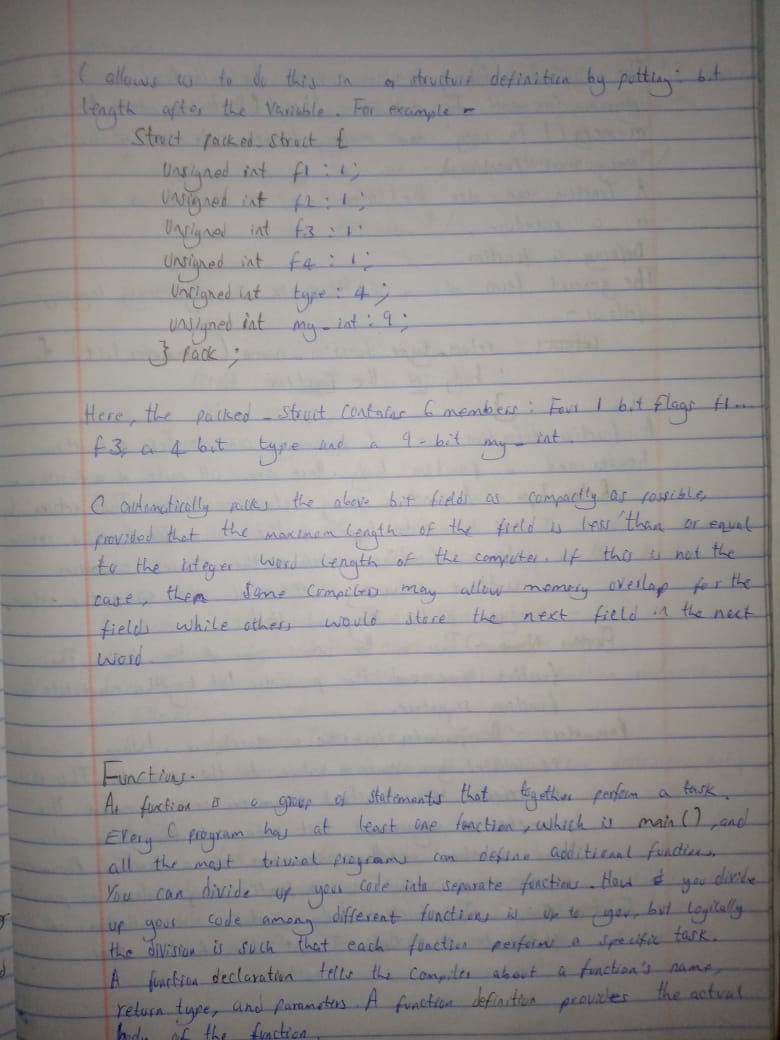 C allows us to do this in a structure definition by putting : bit
length after the variable. For example -
Struct packed_struct {
Unsigned int f1 : 1;
Unsigned int f2 : 1;
Unsigned int f3 : 1;
Unsigned int f4 : 1;
Unsigned int type : 4;
unsigned int my_int : 9;
} Pack ;
Here, the packed_struct contains 6 members : Four 1 bit flags f1...
f3, a 4 bit type and a 9-bit my_int.
C automatically packs the above bit fields as compactly as possible,
provided that the maximum length of the field is less than or equal
to the integer word length of the computer. If this is not the
case, then some compilers may allow memory overlap for the
fields while others would store the next field in the next
word
Functions.
A function is a group of statements that together perform a task.
Every C program has at least one function, which is main(), and
all the most trivial programs can define additional functions.
You can divide up your code into separate functions. How you divide
up your code among different functions is up to you, but logically
the division is such that each function performs a specific task.
A function declaration tells the compiler about a function's name,
return type, and parameters. A function definition provides the actual
body of the function.